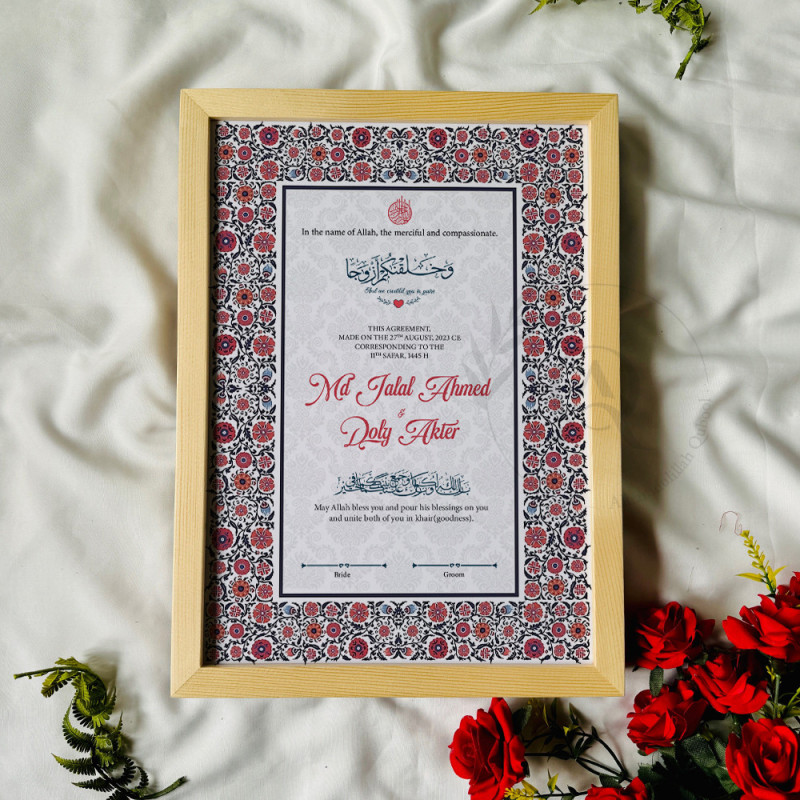 In the name of Allah, the merciful and compassionate.
وَخَلَقْنَٰكُمْ أَزْوَٰجًا
And we created you in pairs
THIS AGREEMENT,
MADE ON THE 27TH AUGUST, 2023 CE
CORRESPONDING TO THE
11TH SAFAR, 1445 H
Md Jalal Ahmed
&
Doly Akter
May Allah bless you and pour his blessings on you
and unite both of you in khair(goodness).
Bride Groom